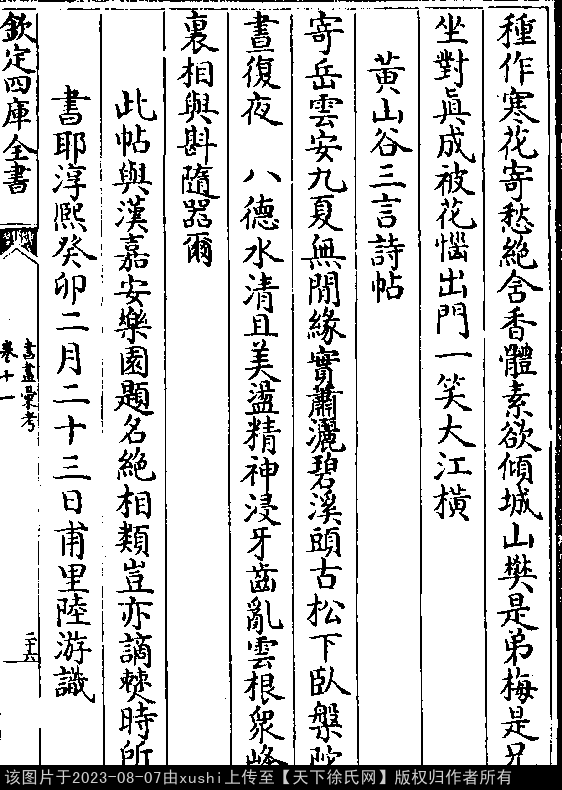 種作寒花寄愁絶含香體素欲傾城山樊是弟梅是兄
坐對真成被花惱出門一笑大江橫
黄山谷三言詩帖
寄岳雲安九夏無閒緣實蕭灑碧溪頭古松下臥盤陀
晝復夜 八德水清且美盪精神浸牙齒亂雲根衆峰
裏相與斟隨器爾
此帖與漢嘉安樂園題名絶相類豈亦謫僰時所
書耶淳熙癸卯二月二十三日甫里陸游識
欽定四庫全書
書畫彙考
卷十一
二十六
该图片于2023-08-07由xushi上传至【天下徐氏网】版权归作者所有